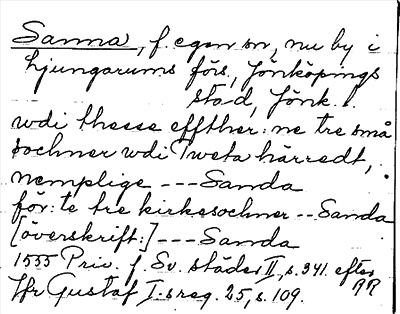 Sanna, f. egen sn, nu by i
Ljungarums förs., Jönköpings
stad, Jönk. l.
wdi thesse effther: ne tre små
sochner wdi Tweta härredt,
nemplige --- Sanda
för: te tre kirkesochner -- Sanda
[överskrift:] --- Sanda
1555 Priv. f. Sv. städer II, s. 341. efter
Hfr Gustaf I:s reg. 25, s. 109.
RR